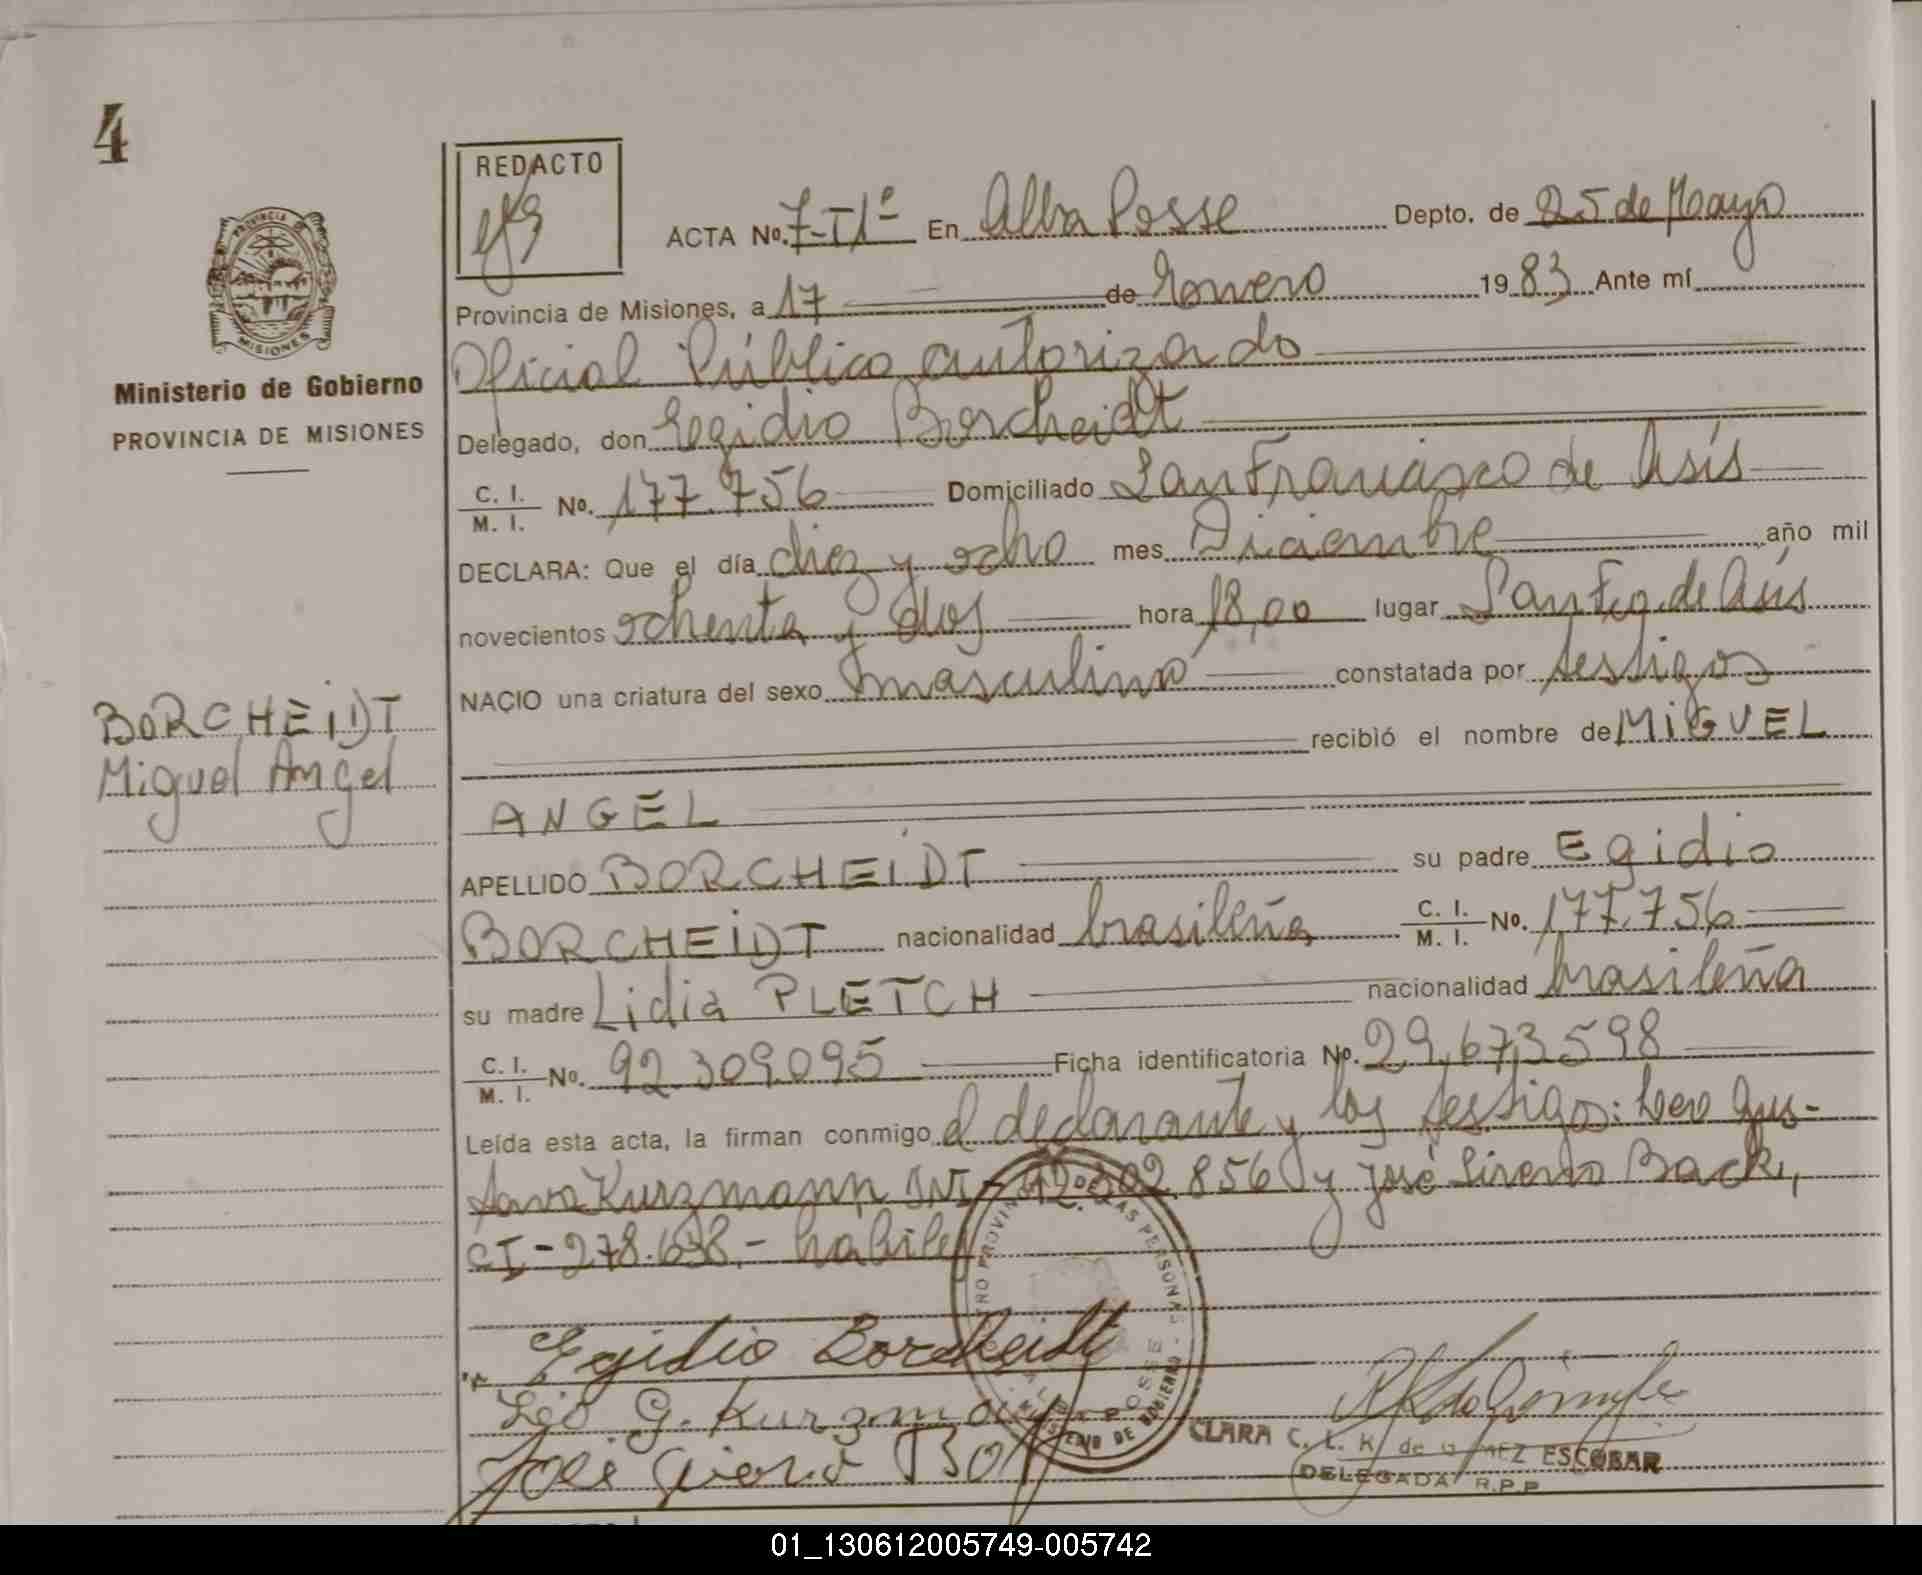 4
REDACTO
ACTA No. 7-T1º En Alba Posse Depto. de 25 de Mayo
PROVINCIA DE MISIONES
Provincia de Misiones, a 17 de Enero 1983 Ante mí
Oficial Público autorizado
Ministerio de Gobierno
PROVINCIA DE MISIONES
Delegado, don Egidio Borcheidt
C. I. M. I. No. 177.756 Domiciliado San Francisco de Asís
DECLARA: Que el día diez y ocho mes Diciembre año mil
novecientos ochenta y dos hora 18,00 lugar San Fco. de Asís
NACIO una criatura del sexo masculino constatada por testigos
BORCHEIDT
Miguel Angel
recibió el nombre de MIGUEL
ANGEL
APELLIDO BORCHEIDT su padre Egidio
BORCHEIDT nacionalidad brasileña C. I. M. I. No. 177.756
su madre Lidia PLETCH nacionalidad brasileña
C. I. M. I. No. 92.309.095 Ficha identificatoria No. 29.673.598
Leída esta acta, la firman conmigo el declarante y los testigos: Leo Gus-
tavo Kurzmann DNI - 856 y José Back,
CI - 278.638.- habiles
Egidio Borcheidt
Leo G. Kurzmann
José
CLARA C. L. K. de GOMEZ ESCOBAR
DELEGADA R.P.P
MINISTERIO DE GOBIERNO
01_130612005749-005742